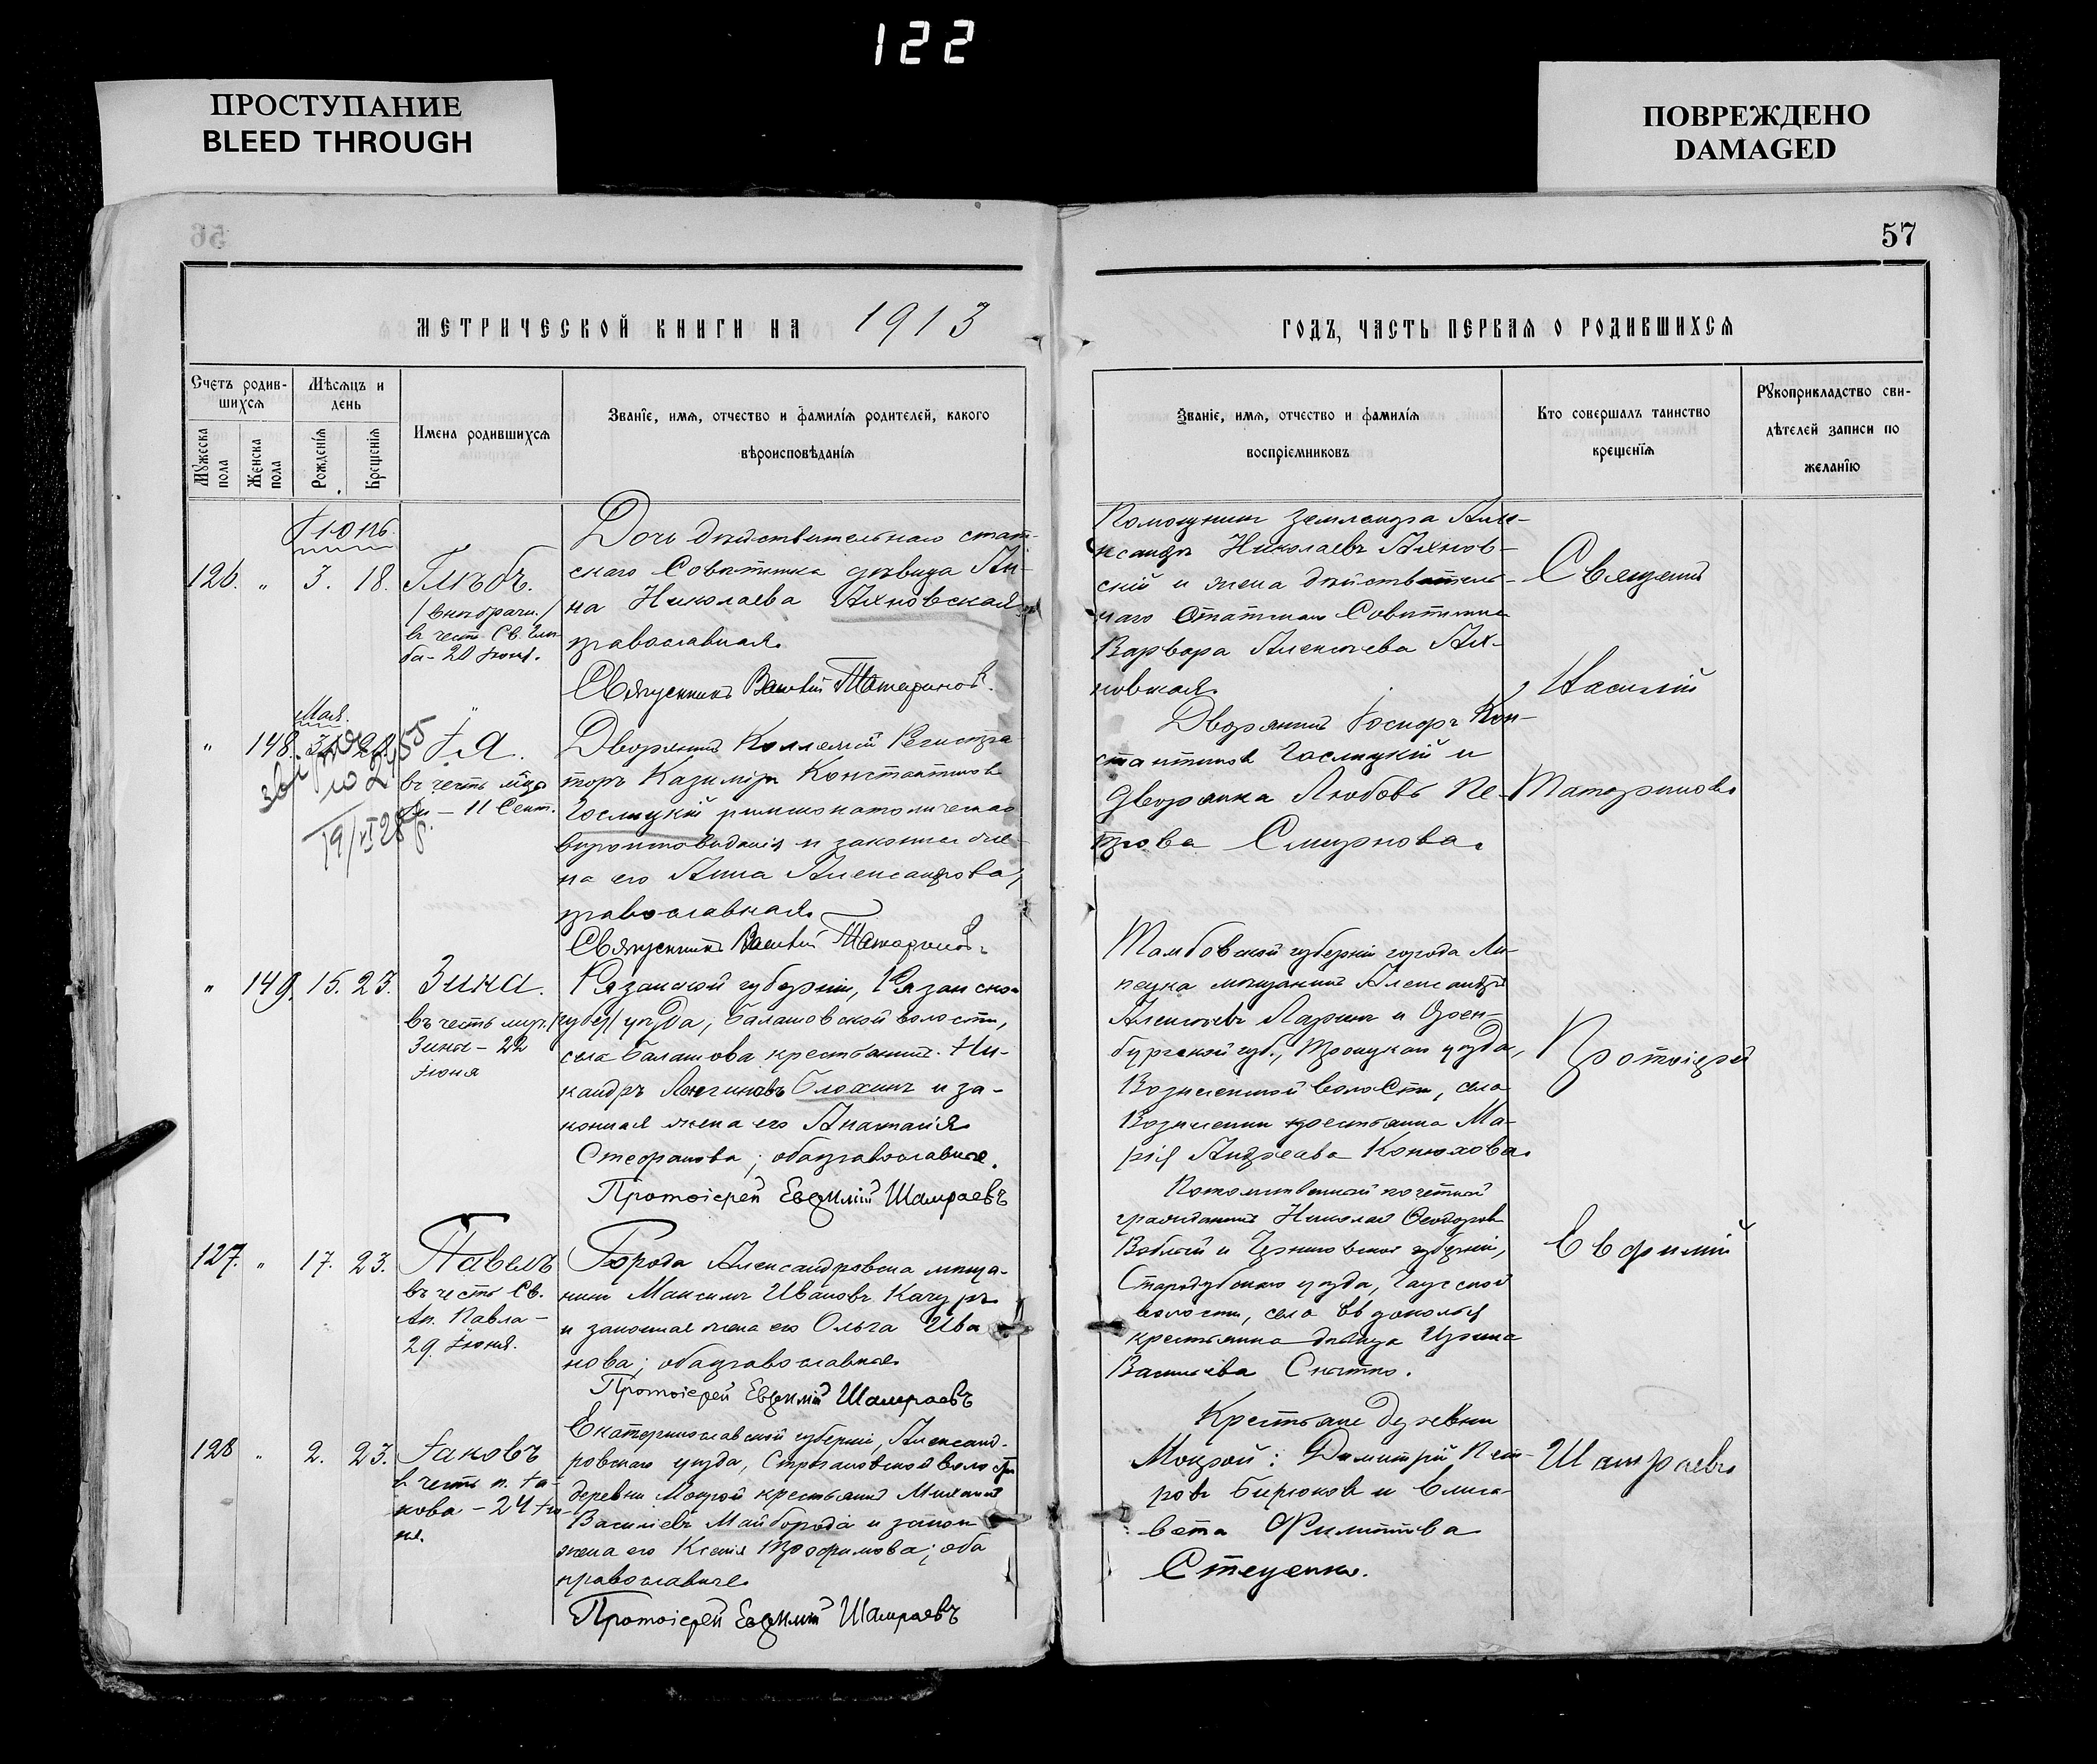 122
ПРОСТУПАНИЕ
BLEED THROUGH
ПОВРЕЖДЕНО
DAMAGED
56
57
МЕТРИЧЕСКОЙ КНИГИ НА 1913
ГОДЪ, ЧАСТЬ ПЕРВАЯ О РОДИВШИХСЯ
Счетъ родив-
шихся
Мѣсяцъ и
день
Мужеска
пола
Женска
пола
Рожденія
Крещенія
Имена родившихся
Званіе, имя, отчество и фамилія родителей, какого
вѣроисповѣданія
Званіе, имя, отчество и фамилія
воспріемниковъ
Кто совершалъ таинство
крещенія
Рукоприкладство сви-
дѣтелей записи по
желанію
Іюнь.
126. " 3. 18. Глѣбъ.
/внѣбрачн./
въ честь Св. Глѣ-
ба - 20 Іюня.
Дочь дѣйствительнаго стат-
скаго Совѣтника дѣвица Ан-
на Николаева Яхновская
православная.
Священникъ Василій Татариновъ.
Помощникъ землемѣра Але-
ксандръ Николаевъ Яхнов-
скій и жена дѣйствитель-
наго Статскаго Совѣтника
Варвара Алексѣева Ях-
новская.
Священникъ
Василій
Татариновъ
Мая.
" 148. Ія.
въ честь мц.
Іи - 11 Сент.
19/VI 28 г.
Дворянинъ Коллежскій Регистра-
торъ Казиміръ Константиновъ
Гослицкій римскокатолическаго
вѣроисповѣданія и законная же-
на его Анна Александрова,
православная.
Священникъ Василій Татариновъ.
Дворянинъ Іосифъ Кон-
стантиновъ Гослицкій и
дворянка Любовь Пе-
трова Смирнова.
" 149. 15. 23. Зина.
въ честь муч.
Зины - 22
Іюня
Рязанской губерніи, Рязанско
/губер/ уѣзда, Балашовской волости,
села Балашова крестьянинъ Ни-
кандръ Логиновъ Блохинъ и за-
конная жена его Анатолія
Стефанова; оба православные.
Протоіерей Евѳимій Шамраевъ
Тамбовской губерніи города Ли-
пецка мѣщанинъ Александръ
Алексѣевъ Ларинъ и Орен-
бургской губ., Троицкаго уѣзда,
Вознесенской волости, села
Вознесенки крестьянка Ма-
рія Андреева Конюхова.
Протоіерей
Евфимій
Шамраевъ
127. " 17. 23. Павелъ
въ честь Св.
Ап. Павла -
29 Іюня.
Города Александровска мѣща-
нинъ Максимъ Ивановъ Качуръ
и законная жена его Ольга Ива
нова; оба православные.
Протоіерей Евѳимій Шамраевъ
Потомственный почетный
гражданинъ Николай Ѳеодоровъ
Воблый и Черниговской губерніи,
Стародубскаго уѣзда,
волости, села
крестьянка дѣвица Ирина
Васильева Снытко.
128 " 2. 23. Іаковъ
въ честь п. Іа-
кова - 24 Ію-
ня.
Екатеринославской губерніи, Александ-
ровскаго уѣзда, Строгановской волости
деревни Мокрой крестьянинъ Михаилъ
Василіевъ Майборода и закон
жена его Ксенія Трофимова; оба
православные.
Протоіерей Евѳимій Шамраевъ
Крестьяне деревни
Мокрой: Димитрій Пет-
ровъ Бирюковъ и Елиса-
вета Филиппова
Стеценко.